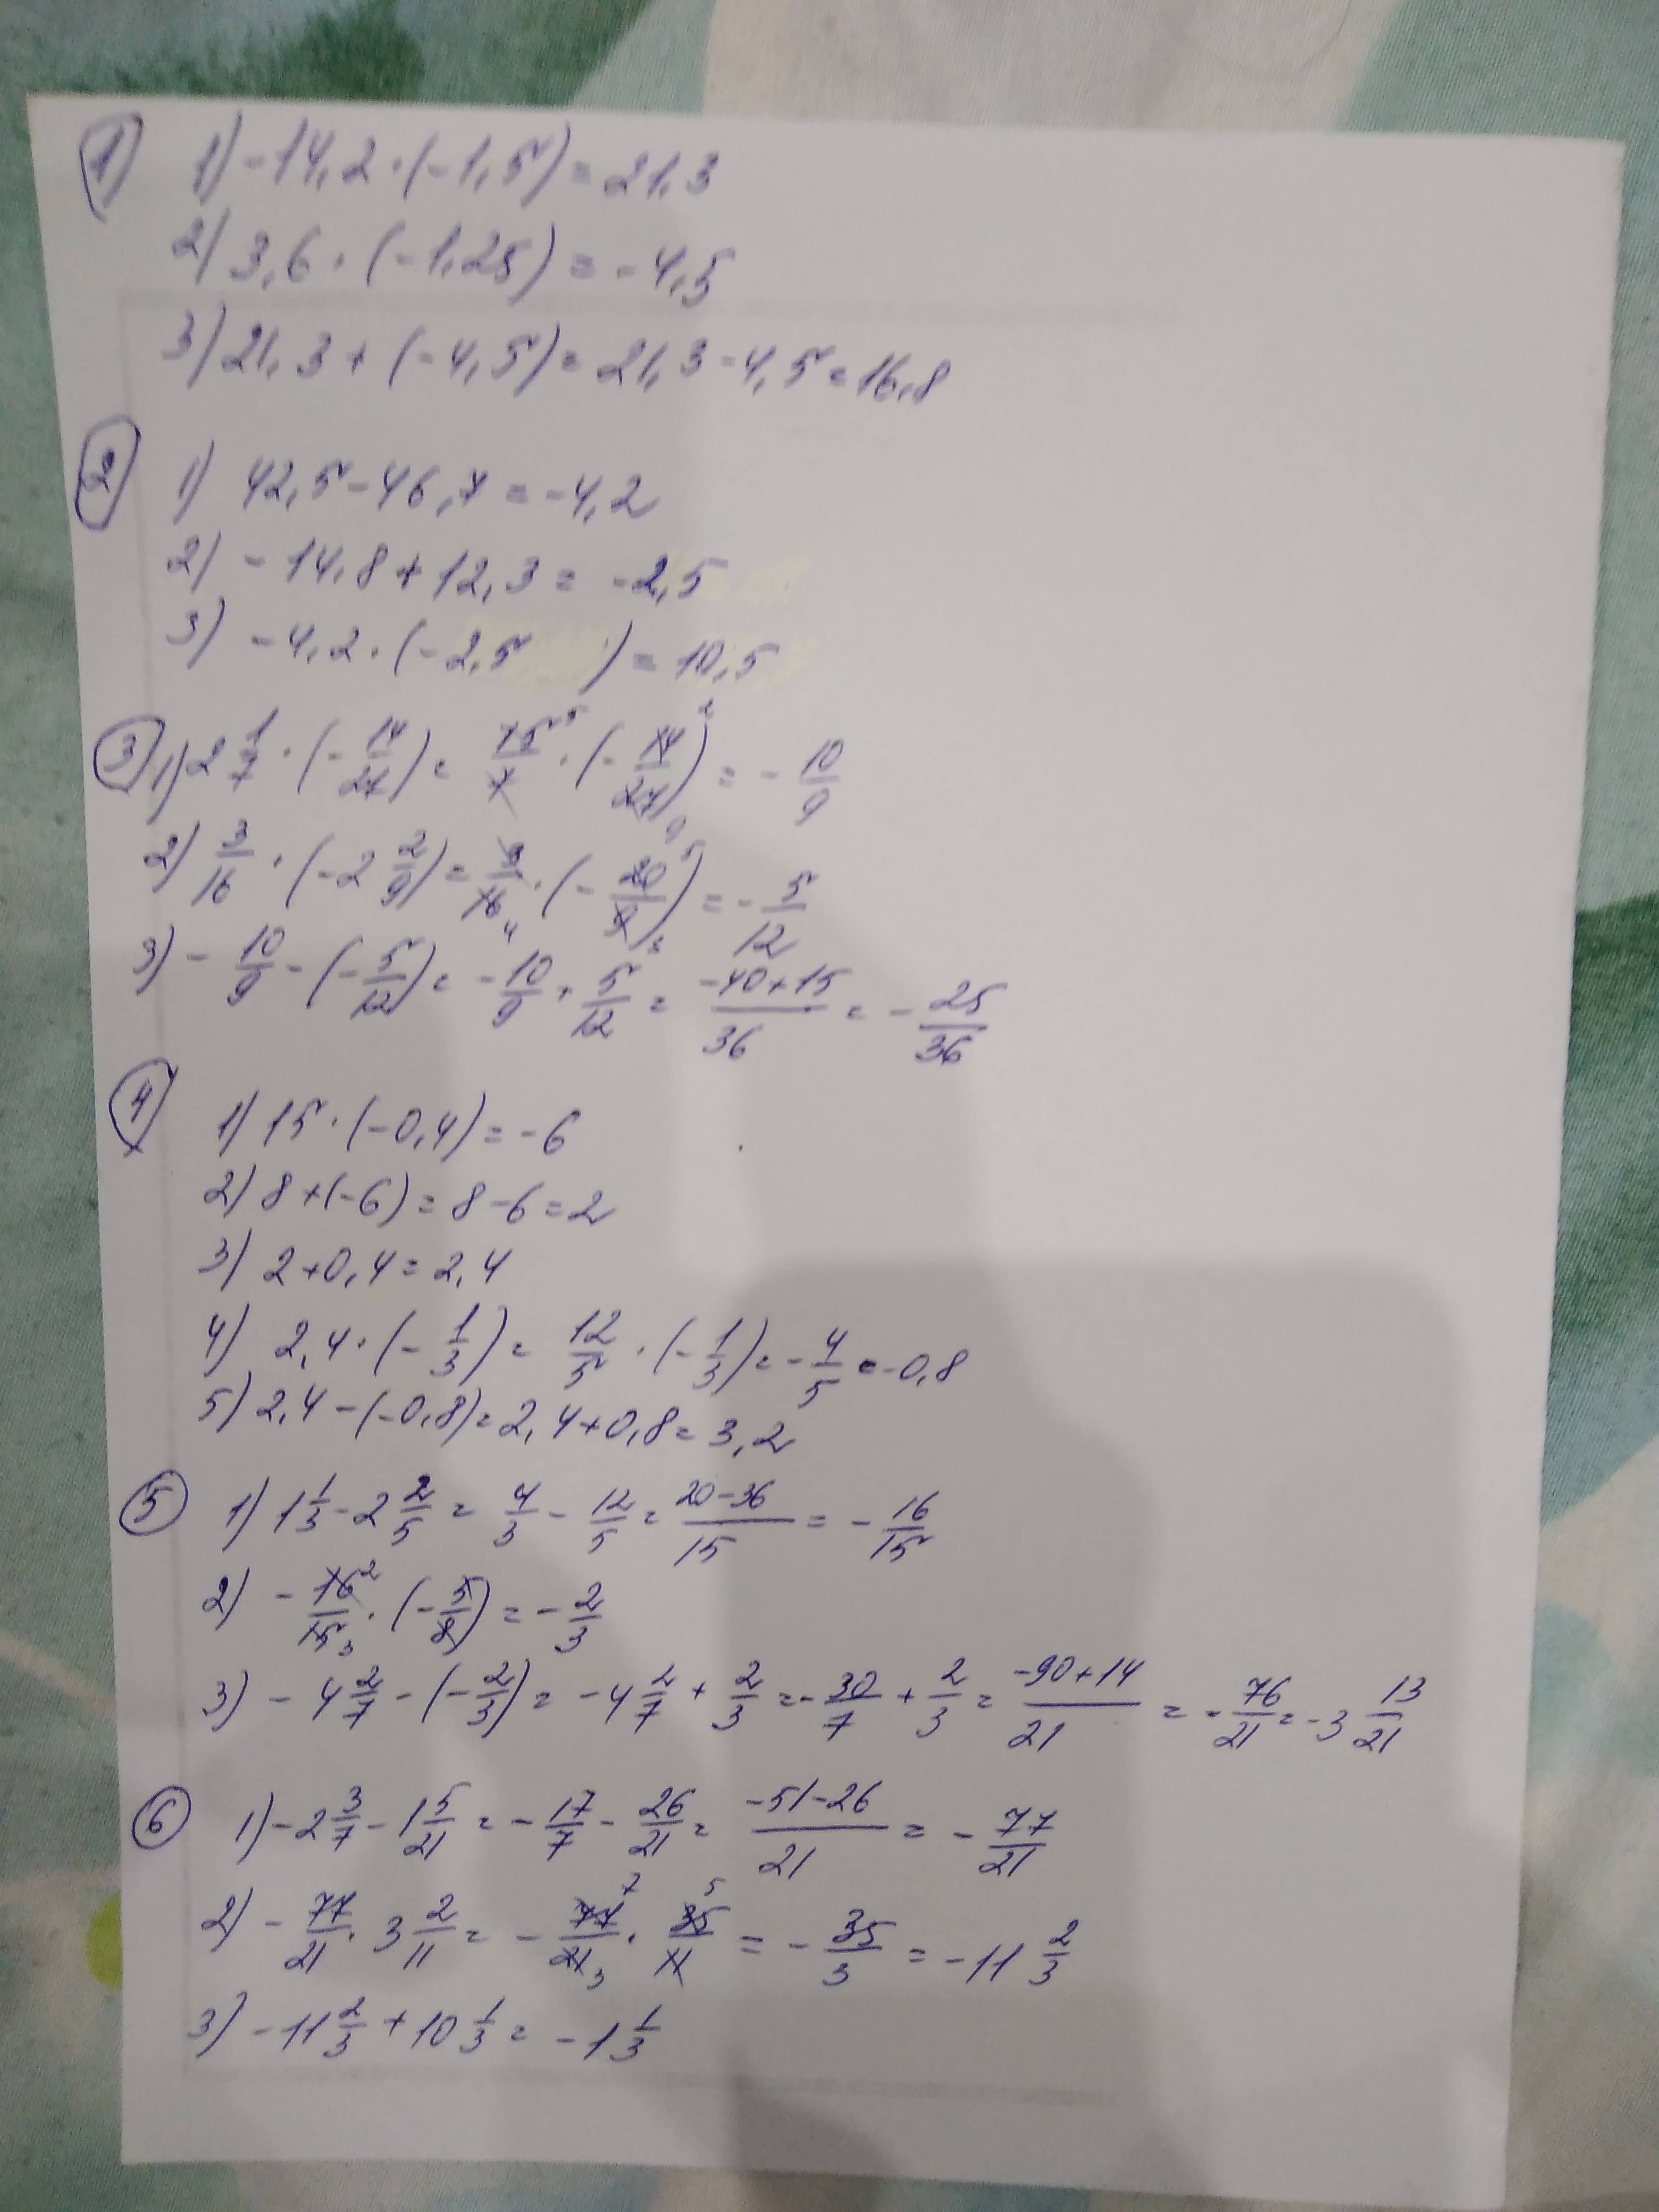 1 1) -14,2 · (-1,5) = 21,3
2) 3,6 · (-1,25) = -4,5
3) 21,3 + (-4,5) = 21,3 - 4,5 = 16,8
2 1) 42,5 - 46,7 = -4,2
2) -14,8 + 12,3 = -2,5
3) -4,2 · (-2,5) = 10,5
3 1) 2 1/7 · (-14/27) = 15/7 5 · (-14/27) 2 9 = -10/9
2) 3/16 · (-2 2/9) = 3/16 4 · (-20/9) 5 3 = -5/12
3) -10/9 - (-5/12) = -10/9 + 5/12 = -40+15/36 = -25/36
4 1) 15 · (-0,4) = -6
2) 8 + (-6) = 8 - 6 = 2
3) 2 + 0,4 = 2,4
4) 2,4 · (-1/3) = 12/5 · (-1/3) = -4/5 = -0,8
5) 2,4 - (-0,8) = 2,4 + 0,8 = 3,2
5 1) 1 1/3 - 2 2/5 = 4/3 - 12/5 = 20-36/15 = -16/15
2) -16/15 2 3 · (-5/8) = -2/3
3) -4 2/7 - (-2/3) = -4 2/7 + 2/3 = -30/7 + 2/3 = -90+14/21 = -76/21 = -3 13/21
6 1) -2 3/7 - 1 5/21 = -17/7 - 26/21 = -51-26/21 = -77/21
2) -77/21 · 3 2/11 = -77/21 7 3 · 35/11 5 = -35/3 = -11 2/3
3) -11 2/3 + 10 1/3 = -1 1/3